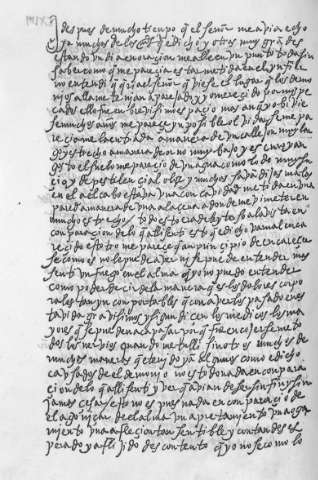 despues de mucho tienpo q̄ el señor me avia echo
ya muchas de las mds q̄ e dicho y otras muy grādes
estando un dia en oraçion me alle en un punto toda sin
saber como q̄ me pareçia estar metida en el ynfierno
no entendi q̄ queria el señor q̄ viese el lugar q̄ los demo
nios alla me tenian aparejado y mereçido por mis pe
cados ello fue en brevisimo espaçio mas anq̄ yo bivie
se muchos años me pareçe ynposible olvidarseme pa
reçiame la entrada a manera de un callejon muy lar
go y estrecho a manera de orno muy bajo y escuro y an
gosto el suelo me pareçio de un agua como lodo muy su
çio y de pestilençial olor y muchas savandijas malas
en el al cabo estava una concavidad metida en una
pared a manera de una alaçena a donde me vi meter en
mucho estrecho todo esto era deleytoso a la vista en
conparaçion de lo q̄ alli senti esto q̄ e dicho va mal enca
reçido estotro me pareçe q̄ aun prinçipio de encareçer
se como es no le puede aver ni se puede entender mas
senti un fuego en el alma q̄ yo no puedo entender
como poder deçir de la manera q̄ es los dolores corpo
rales tan ynconportables q̄ con averlos pasado en es
ta vida gravisimos y sigun diçen los medicos los ma
yores q̄ se pueden aca pasar porq̄ fue encojerseme to
dos los nervios quando me tulli sin otros muchos de
muchas maneras q̄ e tenido y an algunos como e dicho
causados del demonio no es todo nada en conpara
çion de lo q̄ alli senti y ver q̄ avian de ser sin fin y sin
jamas çesar esto no es pues nada en conparaçion de
el agoniçar de el alma un apretamiento un aoga
miento una afleçion tan sentible y con tan deses
perado y afligido descontento q̄ yo no se como lo